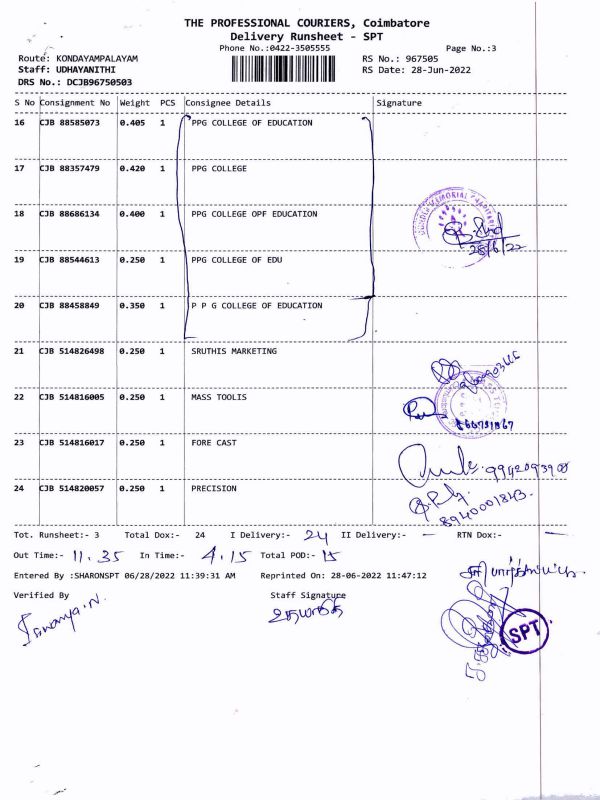 THE PROFESSIONAL COURIERS, Coimbatore
Delivery Runsheet - SPT
Phone No.:0422-3505555 Page No.:3
Route: KONDAYAMPALAYAM RS No.: 967505
Staff: UDHAYANITHI RS Date: 28-Jun-2022
DRS No.: DCJB96750503
S No Consignment No Weight PCS Consignee Details Signature
16 CJB 88585073 0.405 1 PPG COLLEGE OF EDUCATION
17 CJB 88357479 0.420 1 PPG COLLEGE
18 CJB 88686134 0.400 1 PPG COLLEGE OPF EDUCATION
28/6/22
19 CJB 88544613 0.250 1 PPG COLLEGE OF EDU
20 CJB 88458849 0.350 1 P P G COLLEGE OF EDUCATION
21 CJB 514826498 0.250 1 SRUTHIS MARKETING
22 CJB 514816005 0.250 1 MASS TOOLIS
23 CJB 514816017 0.250 1 FORE CAST
24 CJB 514820057 0.250 1 PRECISION
8940001843.
Tot. Runsheet:- 3 Total Dox:- 24 I Delivery:- 24 II Delivery:- - RTN Dox:- -
Out Time:- 11.35 In Time:- 4.15 Total POD:- 15
Entered By :SHARONSPT 06/28/2022 11:39:31 AM Reprinted On: 28-06-2022 11:47:12
Verified By Staff Signature
SPT